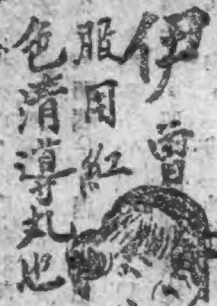 伊曾
服用紅
色清導丸也